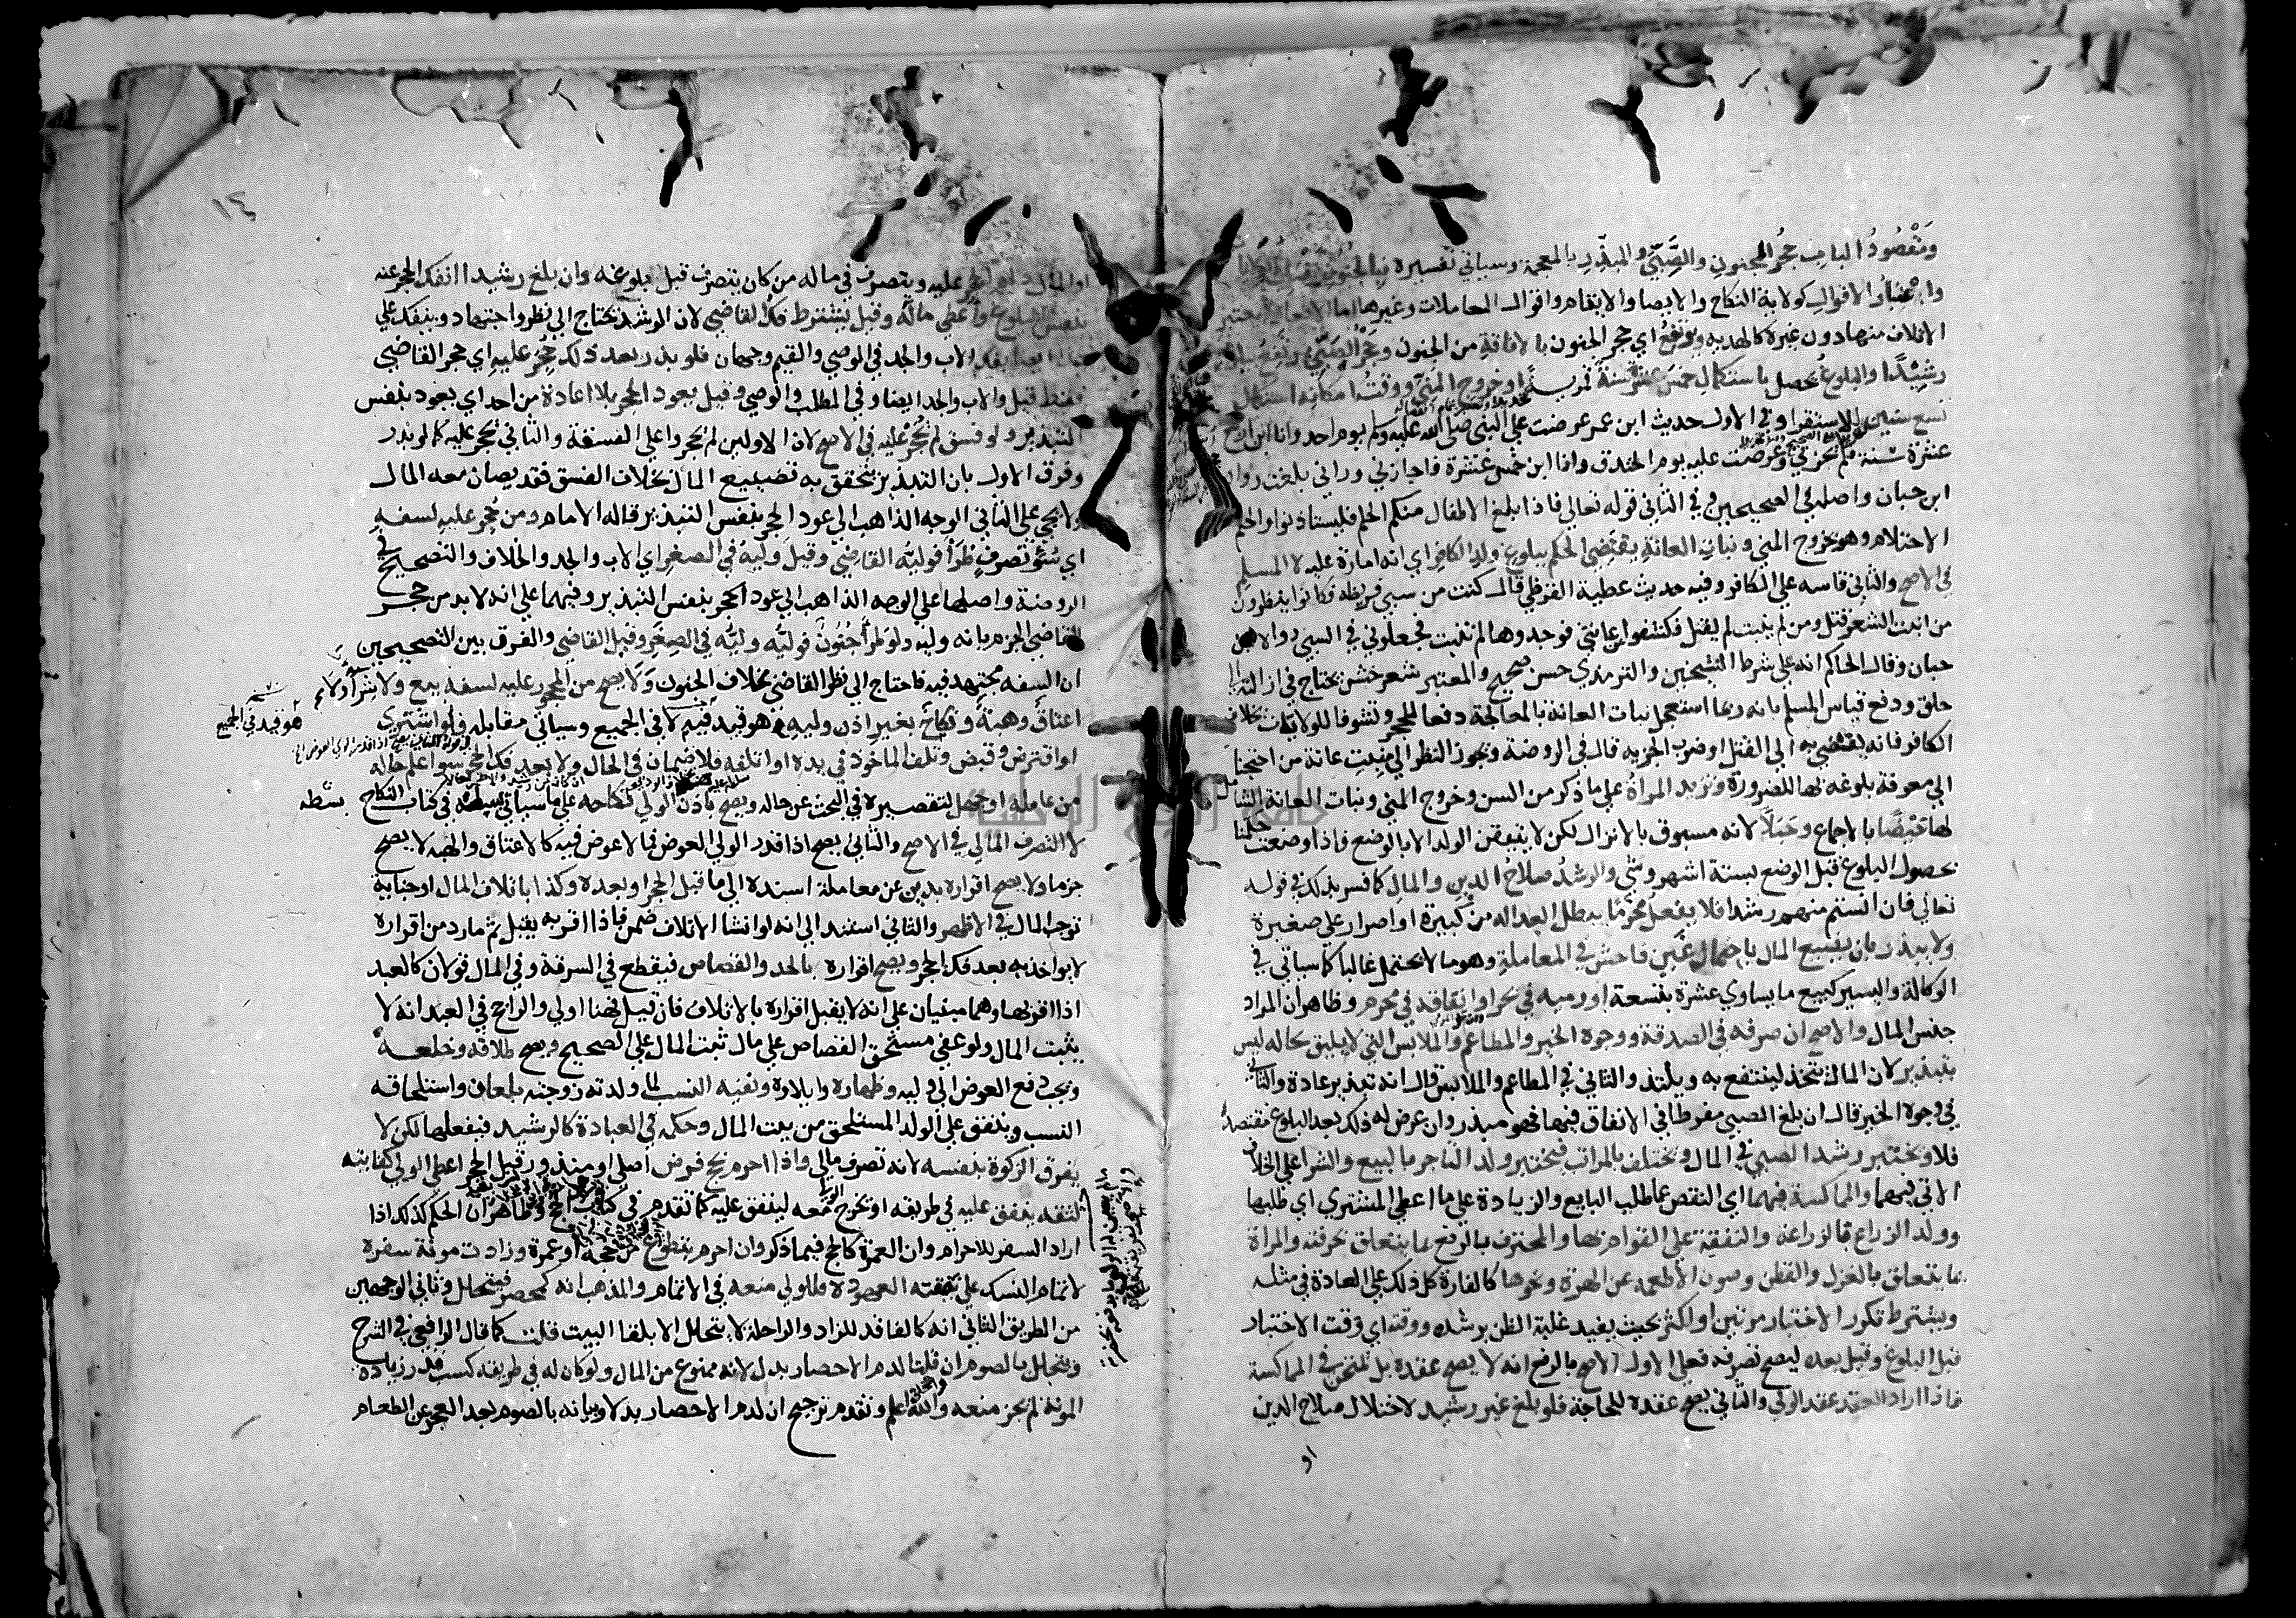 ومَقْصُودُ الباب حجرُ المجنونِ والصَّبيّ والمبذّر بالمعجمة وسياتي تفسيره فبالجنون
واعتبارُ الاقوال كولاية النكاح والايصا والايتام واقوال المعاملات وغيرها اما الافعال فيعتبر
الاتلاف منها دون غيره كالهدية ويرتفعُ اي حجر الجنون بالافاقةِ من الجنون وحجْرُ الصَّبيِّ يرتفع
رشِيْدًا والبلوغُ يحصل باستكمال خمسَ عشرةَ سنة قمرية او خروج المنيّ ووقتُ امكانِه استكمال
تسع سنين للاستقرا وفي الاول حديث ابن عمر عرضت علي النبي صلى الله عليه وسلم يوم احد وانا ابن اربع
عشرة سنة فلم يجزني وعرضت عليه يوم الخندق وانا ابن خمس عشرة فاجازني وراني بلغت رواه
ابن حبان واصله في الصحيحين وفي الثاني قوله تعالي فاذا بلغ الاطفال منكم الحلم فليستاذنوا والحلم
الاحتلام وهو خروج المني ونبات العانةِ يقتضي الحكم ببلوغ ولد الكافر اي انه امارة عليه لا المسلم
في الاصح والثاني قاسه علي الكافر وفيه حديث عطية القرظي قال كنت من سبي قريظه فكانوا ينظرون
من انبت الشعر قتل ومن لم ينبت لم يقتل فكشفوا عانتي فوجدوها لم تنبت فجعلوني في السبي رواه ابن
حبان وقال الحاكم انه علي شرط الشيخين والترمذي حسن صحيح والمعتبر شعر خشن يحتاج في ازالته الي
حلق ودفع قياس المسلم بانه ربما استعجل نبات العانة بالمعالجة دفعا للحجر وتشوفا للولايات بخلاف
الكافر فانه يفضي به الي القتل او ضرب الجزيه قال في الروضة ويجوز النظر الي منبت عانة من احتجنا
الي معرفة بلوغه بها للضرورة وتزيد المراةُ علي ما ذكر من السن وخروج المني ونبات العانة الشامل
لها حَيْضًا بالاجماع وحَبَلًا لانه مسبوق بالانزال لكن لا يتيقن الولد الا بالوضع فاذا وضعت حكمنا
بحصول البلوغ قبل الوضع بستة اشهر وشي والرشدُ صلاحُ الدين والمال كما فسر بذلك في قوله
تعالي فان انستم منهم رشدا فلا يفعل مُحَرَّمًا يبطل العداله من كبيرة او اصرار علي صغيرة
ولا يبذر بان يضيع المال باحتمال غَبن فاحش في المعاملة وهو ما لا يحتمل غالبا كما سياتي في
الوكالة واليسير كبيع ما يساوي عشرة بتسعة او رميه في بحر او انفاقه في محرم وظاهر ان المراد
جنس المال والاصح ان صرفه في الصدقة ووجوه الخير والمطاعم والملابس التي لا يليق بحاله ليس
بتبذير لان المال يتخذ لينتفع به ويلتذ والثاني في المطاعم والملابس قال انه تبذير عادة والثاني
في وجوه الخير قال ان بلغ الصبي مفرطا في الانفاق فيها فهو مبذر وان عرض له ذلك بعد البلوغ مقتصدا
فلا ويختبر رشد الصبي في المال ويختلف بالمراتب فيختبر ولد التاجر بالبيع والشرا علي الخلاف
الاتي فيهما والمماكسة فيهما اي النقص عما طلب البايع والزيادة علي ما اعطي المشتري اي طلبها
وولد الزراع بالزراعه والنفقة علي القوام بها والمحترف بالرفع بما يتعلق بحرفته والمراة
بما يتعلق بالغزل والقطن وصون الاطعمه عن الهرة ونحوها كالفارة كل ذلك علي العادة في مثله
ويشترط تكرر الاختبار مرتين او اكثر بحيث يفيد غلبة الظن برشده ووقته اي وقت الاختبار
قبل البلوغ وقيل بعده ليصح تصرفه فعلي الاول الاصح بالرفع انه لا يصح عقده بل يمتحن في المماكسة
فاذا اراد العقد عقد الولي والثاني يصح عقده للحاجة فلو بلغ غير رشيد لاختلال صلاح الدين
او
او المال دام الحجر عليه ويتصرف في ماله من كان يتصرف قبل بلوغه وان بلغ رشيدا انفك الحجر عنه
بنفس البلوغ وأعطي ماله وقيل يشترط فكُّ القاضي لان الرشد يحتاج الي نظر واجتهاد وينفك علي
هذا ايضا بفك الاب والجد وفي الوصي والقيم وجهان فلو بذر بعد ذلك حُجِرَ عليه اي حجر القاضي
فقط وقيل والاب والجد ايضا وفي المطلب والوصي وقيل يعود الحجر بلا اعادة من احد اي يعود بنفس
التبذير ولو فسق لم يُحْجَرْ عليه في الاصح لان الاولين لم يحجروا علي الفسقة والثاني يحجر عليه كما لو بذر
وفرق الاول بان التبذير يتحقق به تضييع المال بخلاف الفسق فقد يصان معه المال
ولا يجي علي الثاني الوجه الذاهب الي عود الحجر بنفس التبذير قاله الامام ومن حُجِر عليه لسفهٍ
اي سُوء تصرفٍ طرَأ فوليّه القاضي وقيل وليه في الصغر اي الاب والجد والخلاف والتصحيح في
الروضة واصلها علي الوجه الذاهب الي عود الحجر بنفس التبذير وفيهما علي انه لا بد من حجر
القاضي الجزم بانه وليه ولو طرأ جُنُونٌ فوليّه وليُّه في الصغر وقيل القاضي والفرق بين التصحيحين
ان السفه مجتهد فيه فاحتاج الي نظر القاضي بخلاف الجنون وَلا يصح من المحجور عليه لسفه بيع ولا شِرَاٌ ولا
اعتاقٌ وهبةٌ ونكاحٌ بغير اذن وليه هو قيد فيه لا في الجميع وسياتي مقابله فلو اشتري
هو قيد في الجميع
او اقترض وقبض وتلف الماخوذ في يده او اتلفه فلا ضمان في الحال ولا بعد فك الحجر سوا علم حاله
من عامله او جهل لتقصيره في البحث عن حاله ويصح باذن الولي نكاحه علي ما سياتي بسطه في كتاب النكاح
لا التصرف المالي في الاصح والثاني يصح اذا قدر الولي العوض فما لا عوض فيه كالاعتاق والهبه لا يصح
جزما ولا يصح اقراره بدين عن معاملة اسنده الي ما قبل الحجر او بعده وكذا باتلاف المال او جناية
توجب المال في الاظهر والثاني استند الي انه لو انشا الاتلاف ضمن فاذا اقر به يقبل ثم ما رد من اقراره
لا يواخذ به بعد فك الحجر ويصح اقراره بالحد والقصاص فيقطع في السرقة وفي المال قولان كالعبد
اذا اقر بها وهما مبنيان علي انه لا يقبل اقراره بالاتلاف فان قبل فهنا اولي والراجح في العبد انه لا
يثبت المال ولو عفي مستحق القصاص علي مال ثبت المال علي الصحيح ويصح طلاقه وخلعه
ويجب دفع العوض الي وليه وظهاره وايلاوه ونفيه النسب لما ولدته زوجته بلعان واستلحاقه
النسب وينفق علي الولد المستلحق من بيت المال وحكمه في العبادة كالرشيد فيفعلها لكن لا
يفرق الزكوة بنفسه لانه تصرف مالي واذا احرم بحج فرض اصلي او منذور قبل الحجر اعطي الولي كفايته
لثقة ينفق عليه في طريقه او يخرج معه لينفق عليه كما تقدم في كتاب الحج وظاهر ان الحكم كذلك اذا
اراد السفر للاحرام وان العمرة كالحج فيما ذكر وان احرم بتطوع من حجة او عمرة وزادت مونة سفره
لاتمام النسك علي نفقته المعهودة فللولي منعه في الاتمام والمذهب انه كمحصر فيتحلل وثاني الوجهين
من الطريق الثاني انه كالفاقد للزاد والراحلة لا يتحلل الا بلقا البيت قلت كما قال الرافعي في الشرح
ويتحلل بالصوم ان قلنا لدم الاحصار بدل لانه ممنوع من المال ولو كان له في طريقه كسب قدر زيادة
المونة لم يجز منعه والله اعلم وتقدم ترجيح ان لدم الاحصار بدلا وبيانه بالصوم بعد العجز عن الطعام